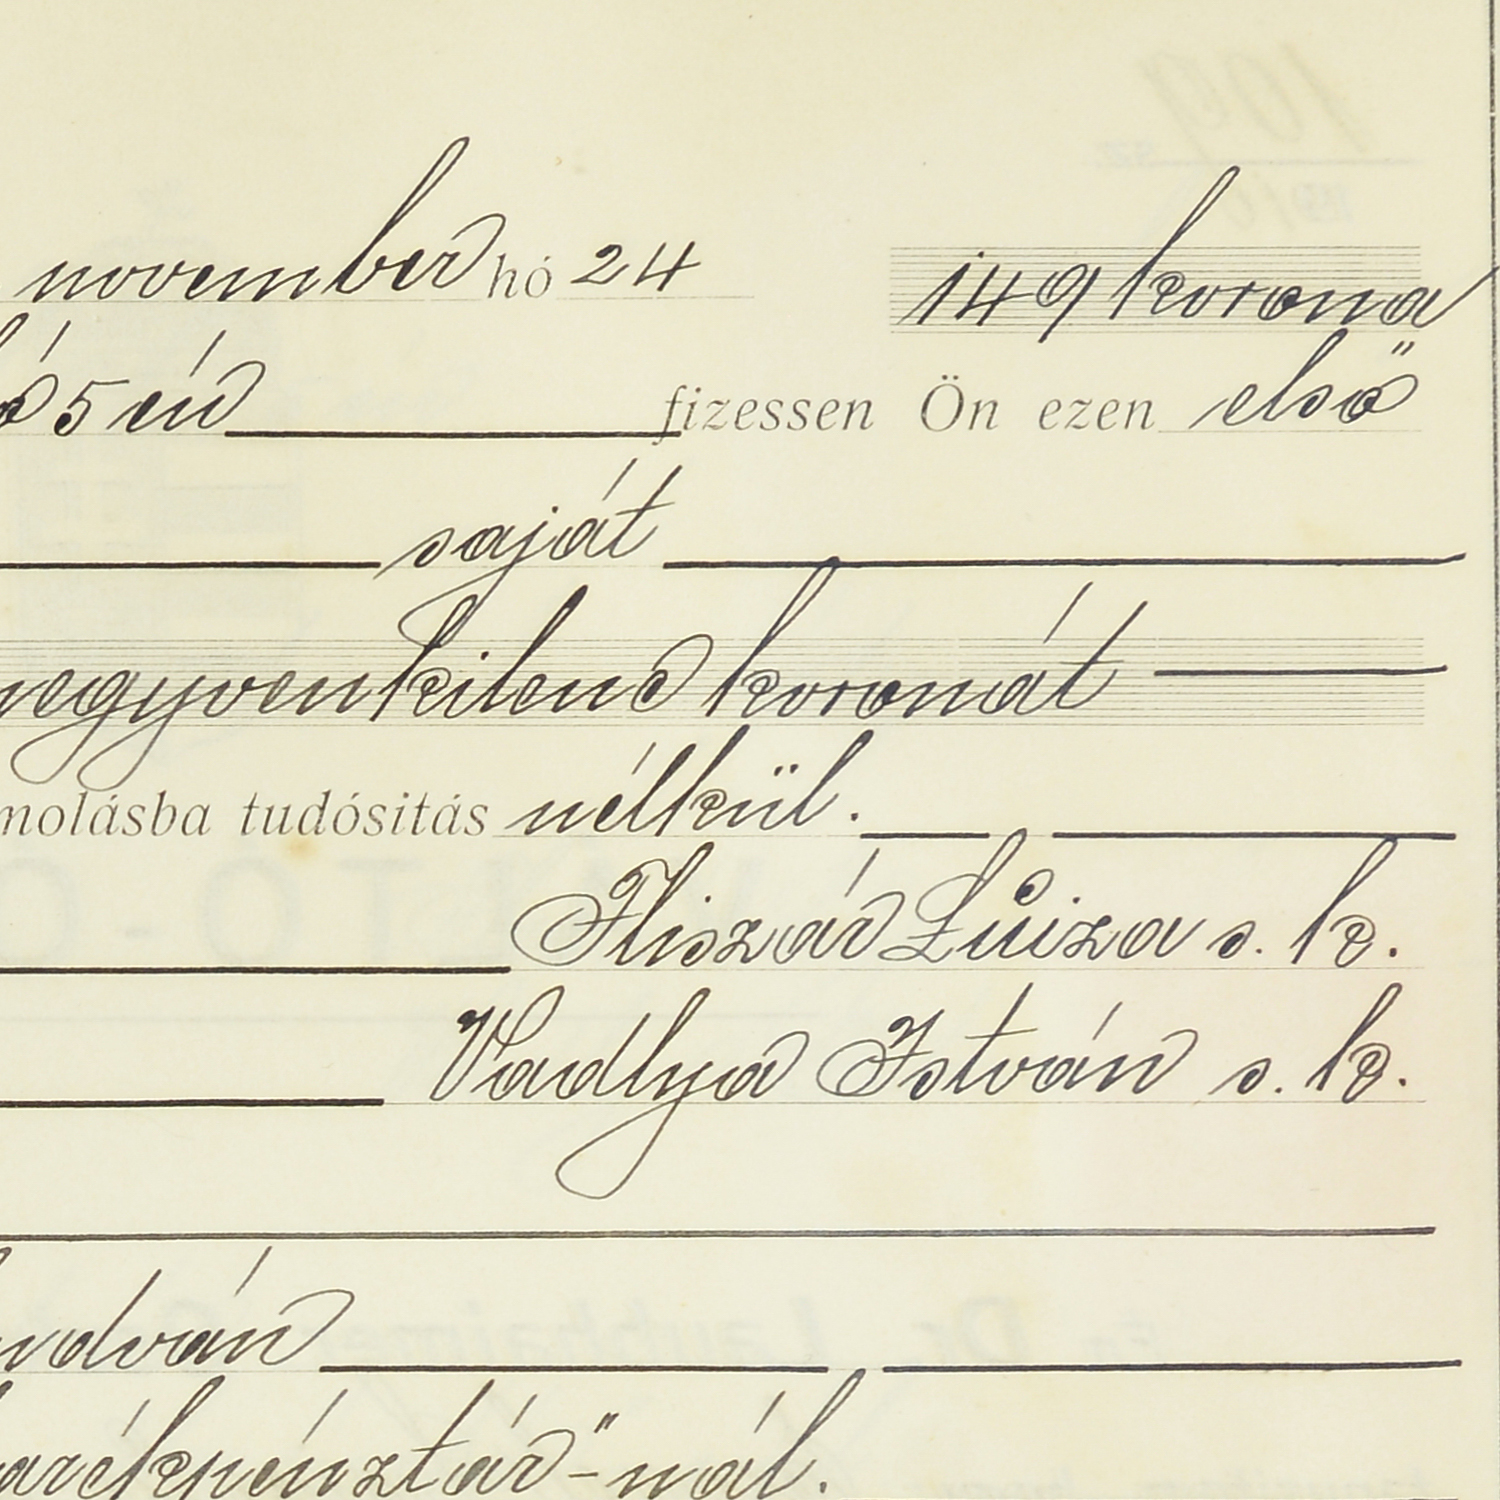 november hó 24 149 korona
5 én fizessen Ön ezen első
saját
negyvenkilenc koronát
molásba tudósitás nélkül.
Fliszár Luiza s. k.
Vadlya István s. k.
ndván
arékpénztár"-nál.